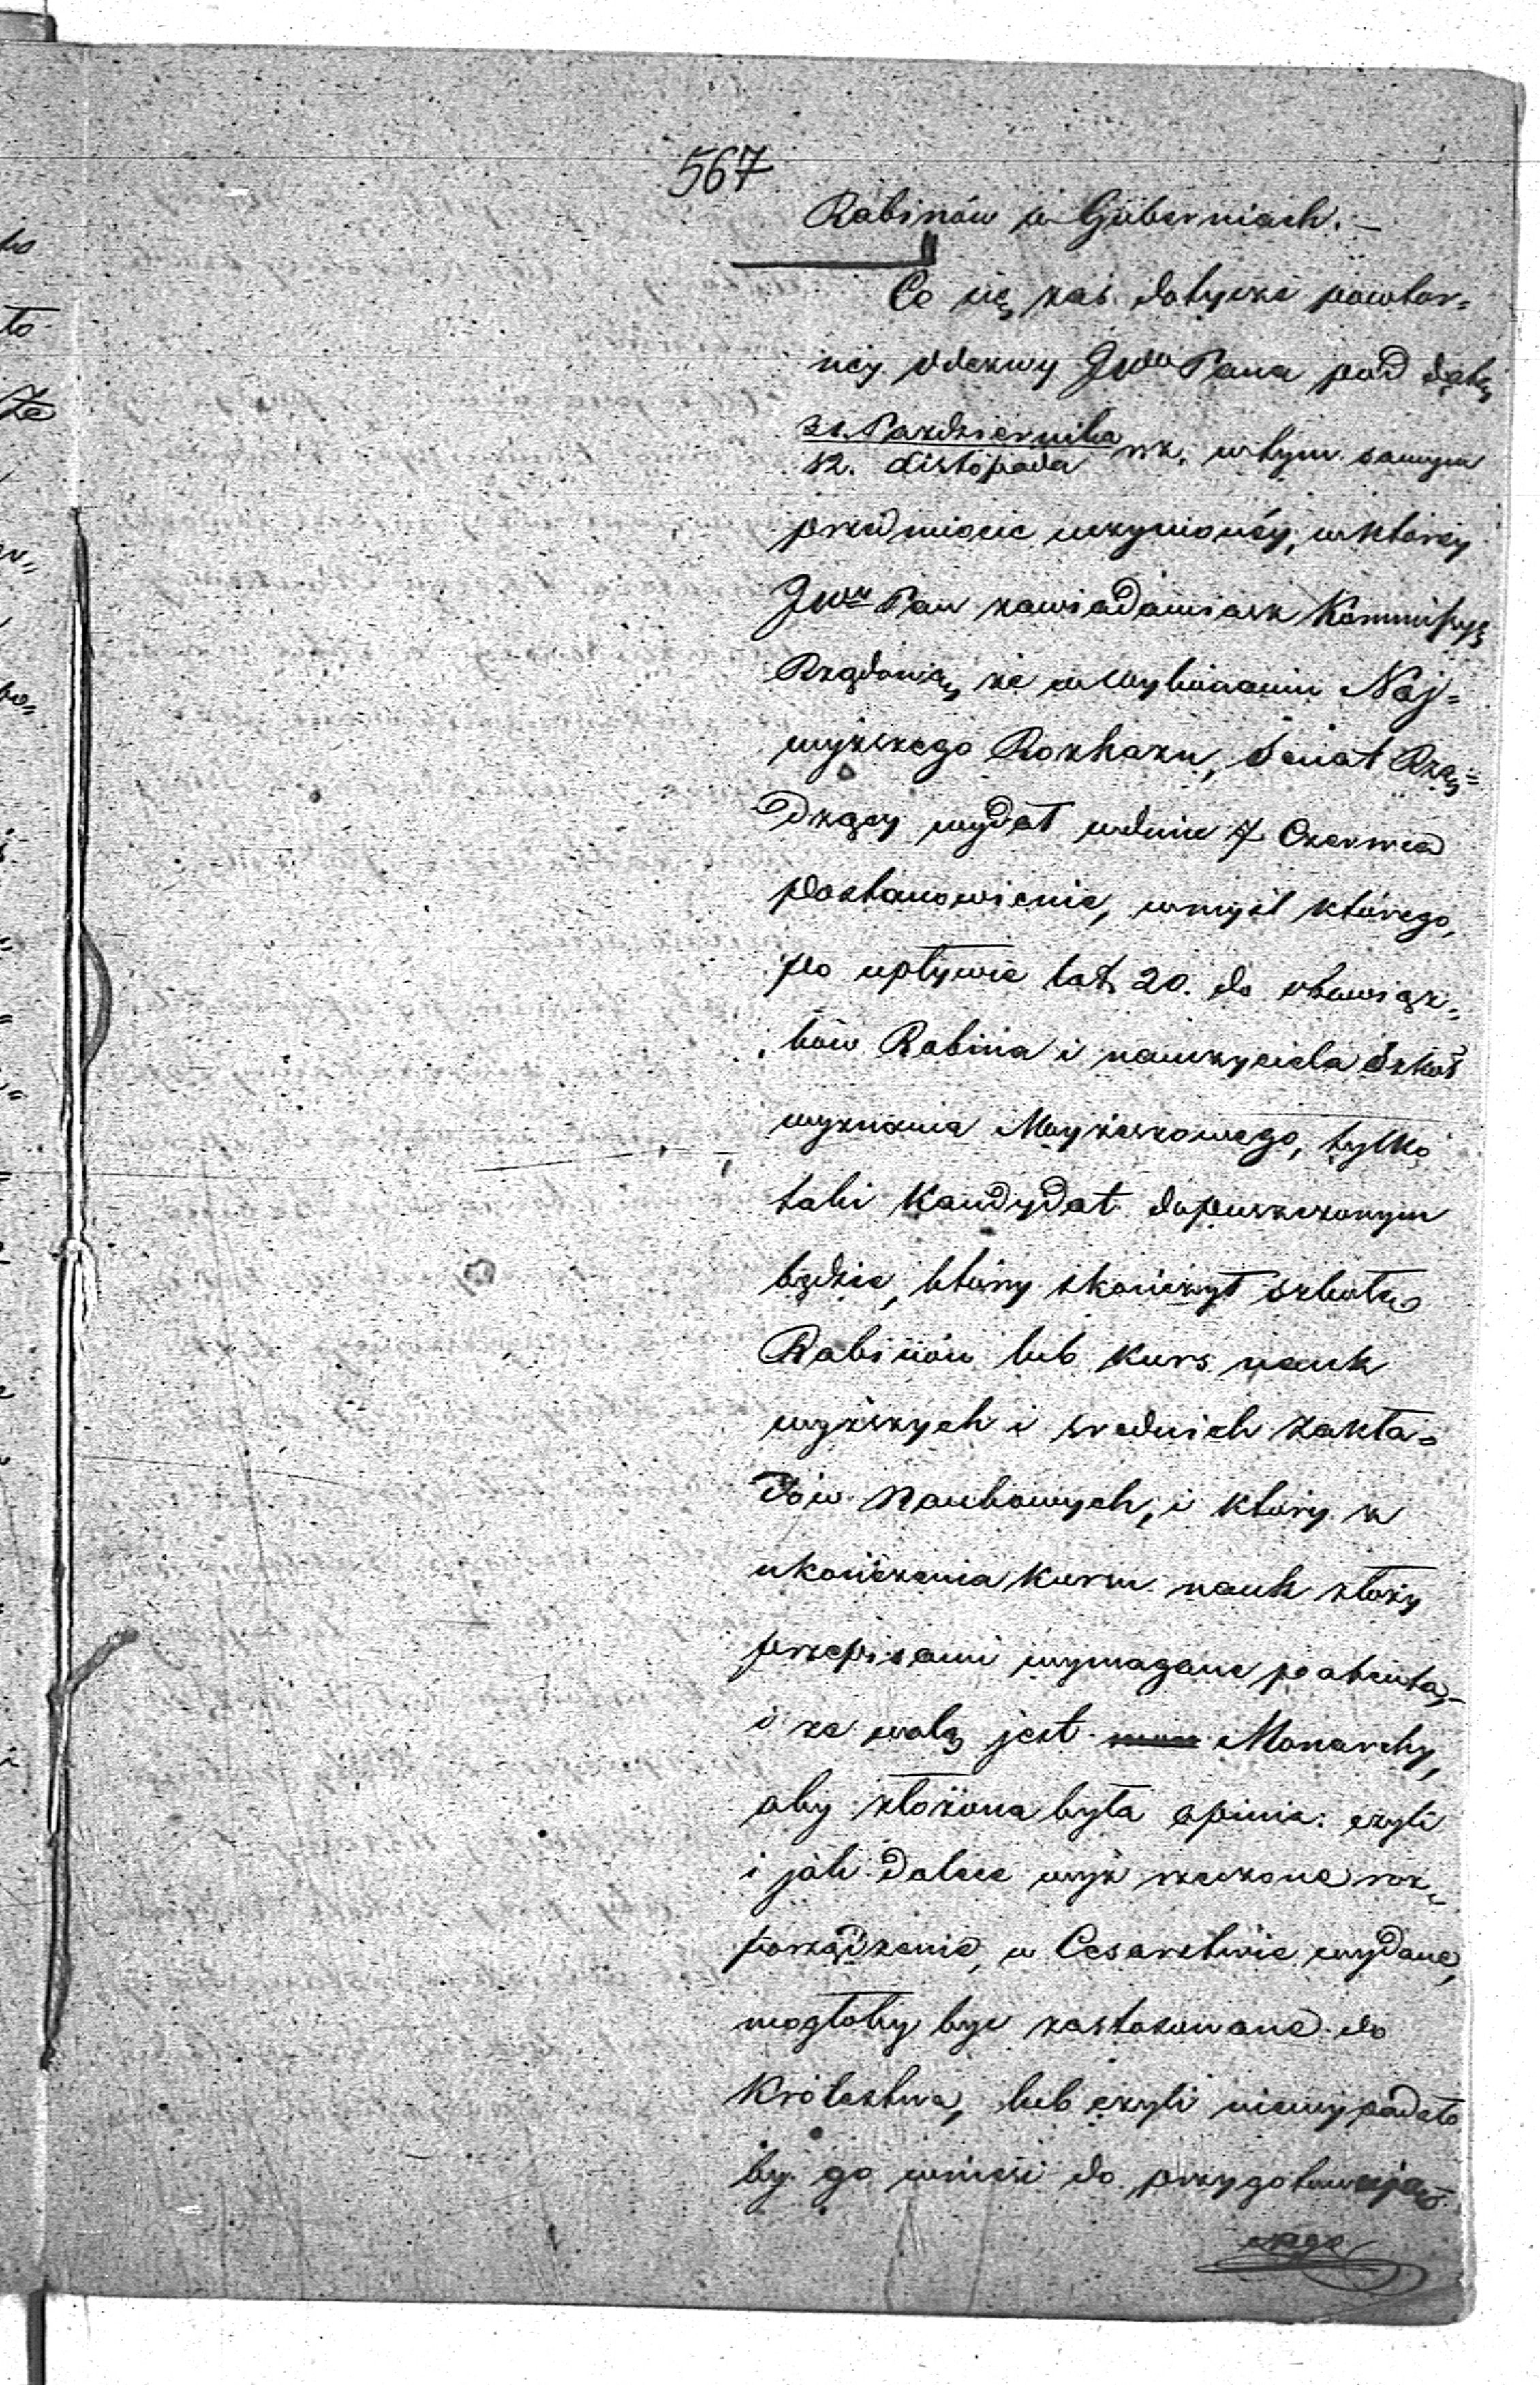 567
Rabinów w Guberniach. –
Co się zaś dotycze powtór=
néy odezwy JWo Pana pod datą
31. Października
12. Listopada rz. w tym samym
przedmiocie uczynionéy, w któréy
JWny Pan zawiadamiasz Kommissyą
Rządową, że w wykonaniu Naj=
wyższego Rozkazu, Senat Rzą=
dzący wydał w dniu 7 Czerwca
postanowienie, w myśl którego,
po upływie lat 20. do obowiąz=
ków Rabina i nauczyciela Szkół
wyznania Mojżeszowego, tylko
taki Kandydat dopuszczonym
będzie, który skończył szkołę
Rabinów lub kurs nauk
wyższych i średnich zakła=
dów Naukowych, i który z
ukończenia kursu nauk złoży
przepisami wymagane patenta, –
i że wolą jest Monarchy,
aby złożona była opinia: czyli
i jak dalece wyż rzeczone roz=
porządzenie, w Cesarstwie wydane,
mogłoby być zastosowane do
Królestwa, lub czyli niewypadało
by go wnieść do przygotowując